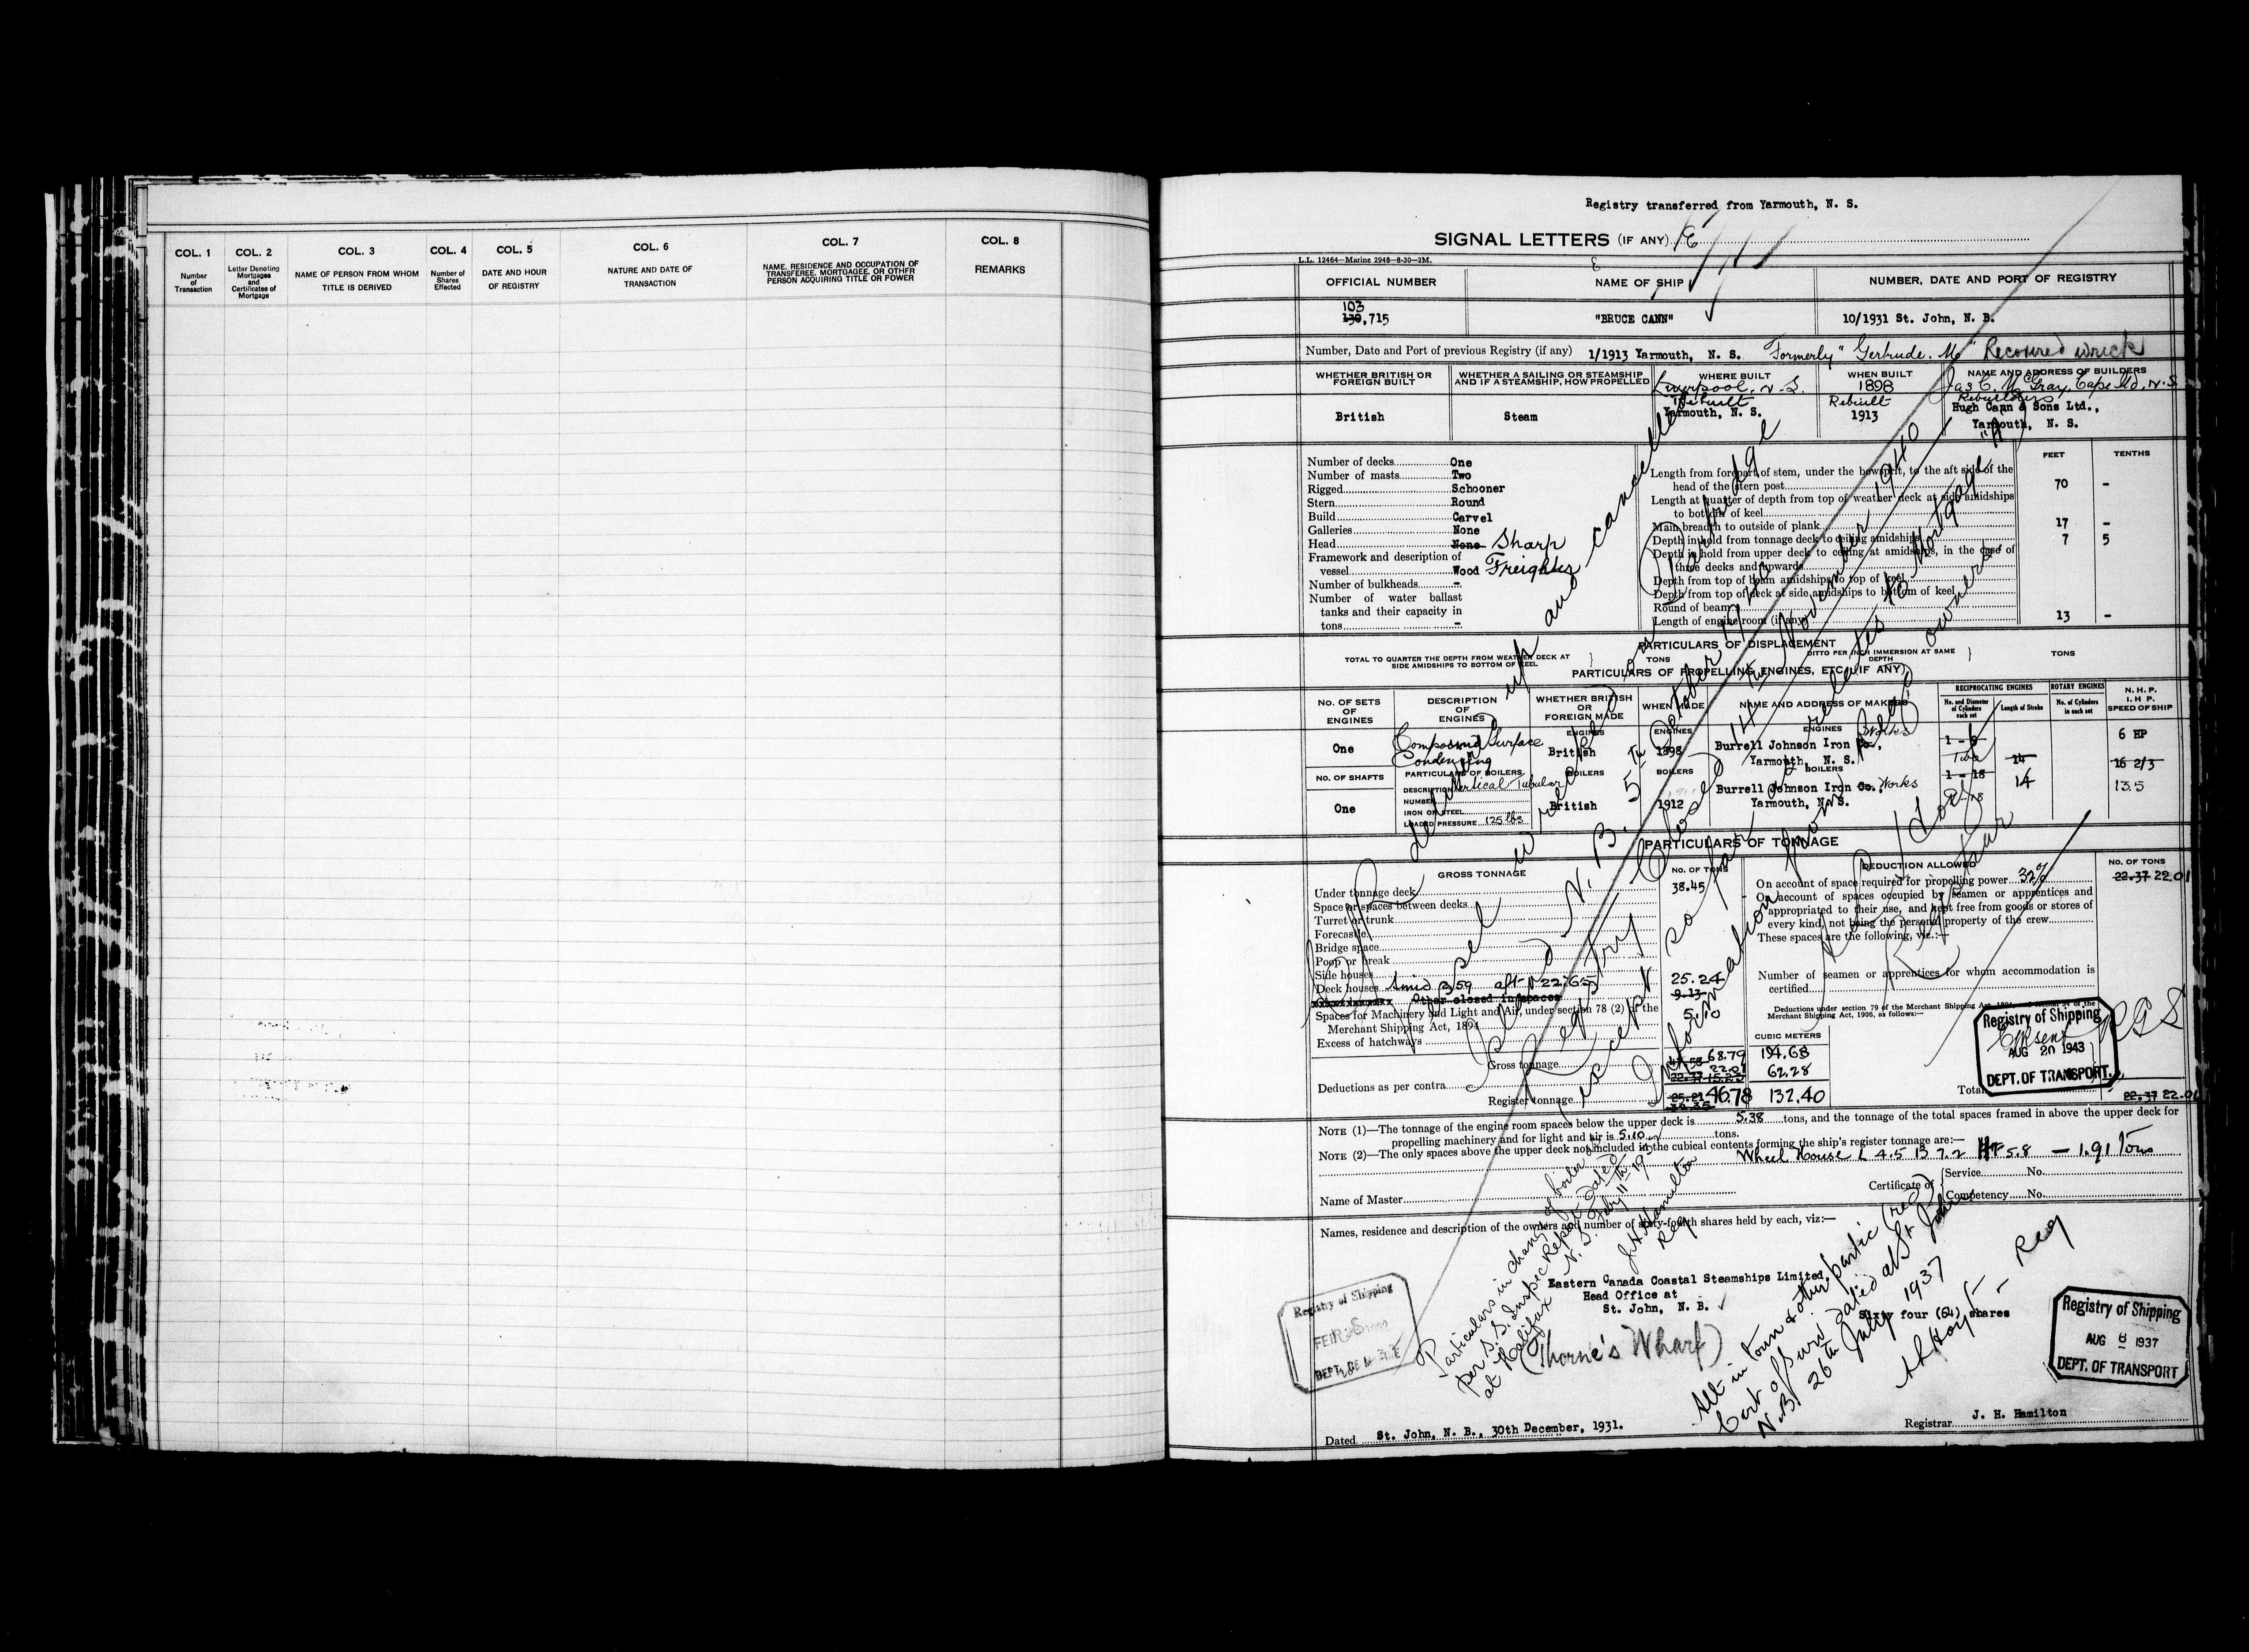 COL. 1
Number of Transaction
COL. 2
Letter Denoting Mortgages and Certificates of Mortgage
COL. 3
NAME OF PERSON FROM WHOM TITLE IS DERIVED
COL. 4
Number of Shares Effected
COL. 5
DATE AND HOUR OF REGISTRY
COL. 6
NATURE AND DATE OF TRANSACTION
COL. 7
NAME, RESIDENCE AND OCCUPATION OF TRANSFEREE, MORTGAGEE, OR OTHER PERSON ACQUIRING TITLE OR POWER
COL. 8
REMARKS
Registry transferred from Yarmouth, N. S.
SIGNAL LETTERS (IF ANY)
L.L. 12464—Marine 2948—8-30—2M.
OFFICIAL NUMBER
NAME OF SHIP
NUMBER, DATE AND PORT OF REGISTRY
103
130,715
"BRUCE CANN"
10/1931 St. John, N. B.
Number, Date and Port of previous Registry (if any) 1/1913 Yarmouth, N. S. Formerly "Gertrude. M" Recovered wreck
WHETHER BRITISH OR FOREIGN BUILT
WHETHER A SAILING OR STEAMSHIP AND IF A STEAMSHIP, HOW PROPELLED
WHERE BUILT
WHEN BUILT
NAME AND ADDRESS OF BUILDERS
Liverpool, N.S.
1898
Jas C. McGray, Cape Id, N.S.
Rebuilt
Rebuilt
Rebuilders
British
Steam
Yarmouth, N. S.
1913
Hugh Cann & Sons Ltd.,
Yarmouth, N. S.
FEET
TENTHS
Number of decks One
Number of masts Two
Rigged Schooner
Stern Round
Build Carvel
Galleries None
Head None Sharp
Framework and description of
vessel Wood Freighter
Number of bulkheads –
Number of water ballast
tanks and their capacity in
tons –
Length from forepart of stem, under the bowsprit, to the aft side of the
head of the stern post 70 –
Length at quarter of depth from top of weather deck at side amidships
to bottom of keel
Main breadth to outside of plank 17 –
Depth in hold from tonnage deck to ceiling amidships 7 5
Depth in hold from upper deck to ceiling at amidships, in the case of
three decks and upwards
Depth from top of beam amidships to top of keel
Depth from top of deck at side amidships to bottom of keel
Round of beam
Length of engine room (if any) 13 –
PARTICULARS OF DISPLACEMENT
TOTAL TO QUARTER THE DEPTH FROM WEATHER DECK AT SIDE AMIDSHIPS TO BOTTOM OF KEEL
TONS
DITTO PER INCH IMMERSION AT SAME DEPTH
TONS
PARTICULARS OF PROPELLING ENGINES, ETC. (IF ANY)
No. OF SETS OF ENGINES
DESCRIPTION OF ENGINES
WHETHER BRITISH OR FOREIGN MADE
WHEN MADE
NAME AND ADDRESS OF MAKERS
RECIPROCATING ENGINES
No. and Diameter of Cylinders each set
Length of Stroke
ROTARY ENGINES
No. of Cylinders in each set
N. H. P.
I. H. P.
SPEED OF SHIP
ENGINES
ENGINES
ENGINES
One
Compound Surface Condensing
British
1898
Burrell Johnson Iron Co. Works
Yarmouth, N. S.
Two
14
6 HP
No. OF SHAFTS
PARTICULARS OF BOILERS
BOILERS
BOILERS
BOILERS
1 – 18
14
16 2/3
13.5
One
DESCRIPTION Vertical Tubular
NUMBER
IRON OR STEEL
LOADED PRESSURE 125 lbs
British
1912
Burrell Johnson Iron Co. Works
Yarmouth, N. S.
PARTICULARS OF TONNAGE
GROSS TONNAGE
No. OF TONS
DEDUCTION ALLOWED
No. OF TONS
Under tonnage deck 38.45
Space or spaces between decks
Turret or trunk
Forecastle
Bridge space
Poop or break
Side houses
Deck houses Amid 2.59 aft 22.65 25.24
Other closed in spaces 9.13
Spaces for Machinery and Light and Air, under section 78 (2) of the
Merchant Shipping Act, 1894 5.10
Excess of hatchways
On account of space required for propelling power 32% 22.37 22.01
On account of spaces occupied by seamen or apprentices and
appropriated to their use, and kept free from goods or stores of
every kind, not being the personal property of the crew
These spaces are the following, viz:—
Number of seamen or apprentices for whom accommodation is
certified
CUBIC METERS
Gross tonnage 68.79 194.68
Deductions as per contra 22.01 62.28
Register tonnage 25.21 46.78 132.40
Total 22.37 22.01
NOTE (1)—The tonnage of the engine room spaces below the upper deck is 5.38 tons, and the tonnage of the total spaces framed in above the upper deck for
propelling machinery and for light and air is 5.10 tons.
NOTE (2)—The only spaces above the upper deck not included in the cubical contents forming the ship's register tonnage are:—
Wheel House L 4.5 B 7.2 HT 5.8 — 1.91 Tons
Name of Master
Certificate of
Service No.
Competency No.
Names, residence and description of the owners and number of sixty-fourth shares held by each, viz:—
Eastern Canada Coastal Steamships Limited,
Head Office at
St. John, N. B.
Sixty four (64) shares
(Thorne's Wharf)
Dated St. John, N. B., 30th December, 1931.
Registrar J. H. Hamilton
Vessel wrecked on Partridge
Island N. B. 5th October
Registry Closed 14th November 1940
except so far as relates to Mortgage "A"
Information from owners
Registrar
Particulars in change of boiler
per S. S. Inspec Report dated
at Halifax N. S.
J H Hamilton
Reg
Alt in tonn & other partic (red)
Cert of Surv dated at St John
N.B. 26th July 1937
Reg
Registry of Shipping
AUG 20 1943
DEPT. OF TRANSPORT.
Registry of Shipping
AUG 8 1937
DEPT. OF TRANSPORT
Registry of Shipping